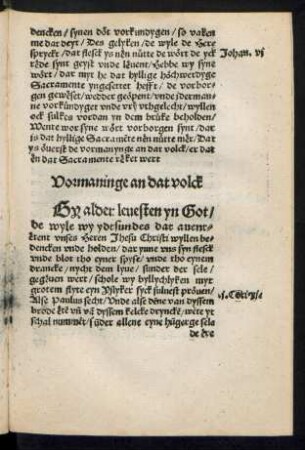 dencken / synen döt vorkundygen / so vaken
me dat deyt / Des gelyken / de wyle de Here
spryckt / dat flesck ys nën nütte de wört de yck
rede synt geyst vnde leuent / Hebbe wy syne
wört / dar myt he dat hyllige höchwerdyge
Sacramente yngesettet hefft / de vorbor-
gen gewëset / wedder geöpent / vnde ydermanne
vorkündyget vnde vry vthgelecht / wyllen
ock sulkes vordan yn dem brüke beholden /
Wente wor syne wört vorborgen synt / dar
is dat hyllige Sacramente nën nütte mër. Dar
ys öuerst de vormanynge an dat volck / er dat
men dat Sacramente reket wert
Johan. vj
Vormaninge an dat volck
Gy alder leuesten yn Got /
de wyle wy ydtsundes dat auent-
etent vnses Heren Jhesu Christi wyllen be-
dencken vnde holden / dar yune vns syn flesck
vnde blot tho eyner spyse / vnde tho eynem
drancke / nycht dem lyue / sunder der sele /
gegeuen wert / schole wy byllychlyken myt
grotem flyte eyn yslyker syck suluest pröuen /
Alse Paulus secht / Vnde alse denne van dyssem
brode ete vn van dyssem kelcke dryncke / wete yt
schal nummet / sunder allene eyne hungerge sela
de ere